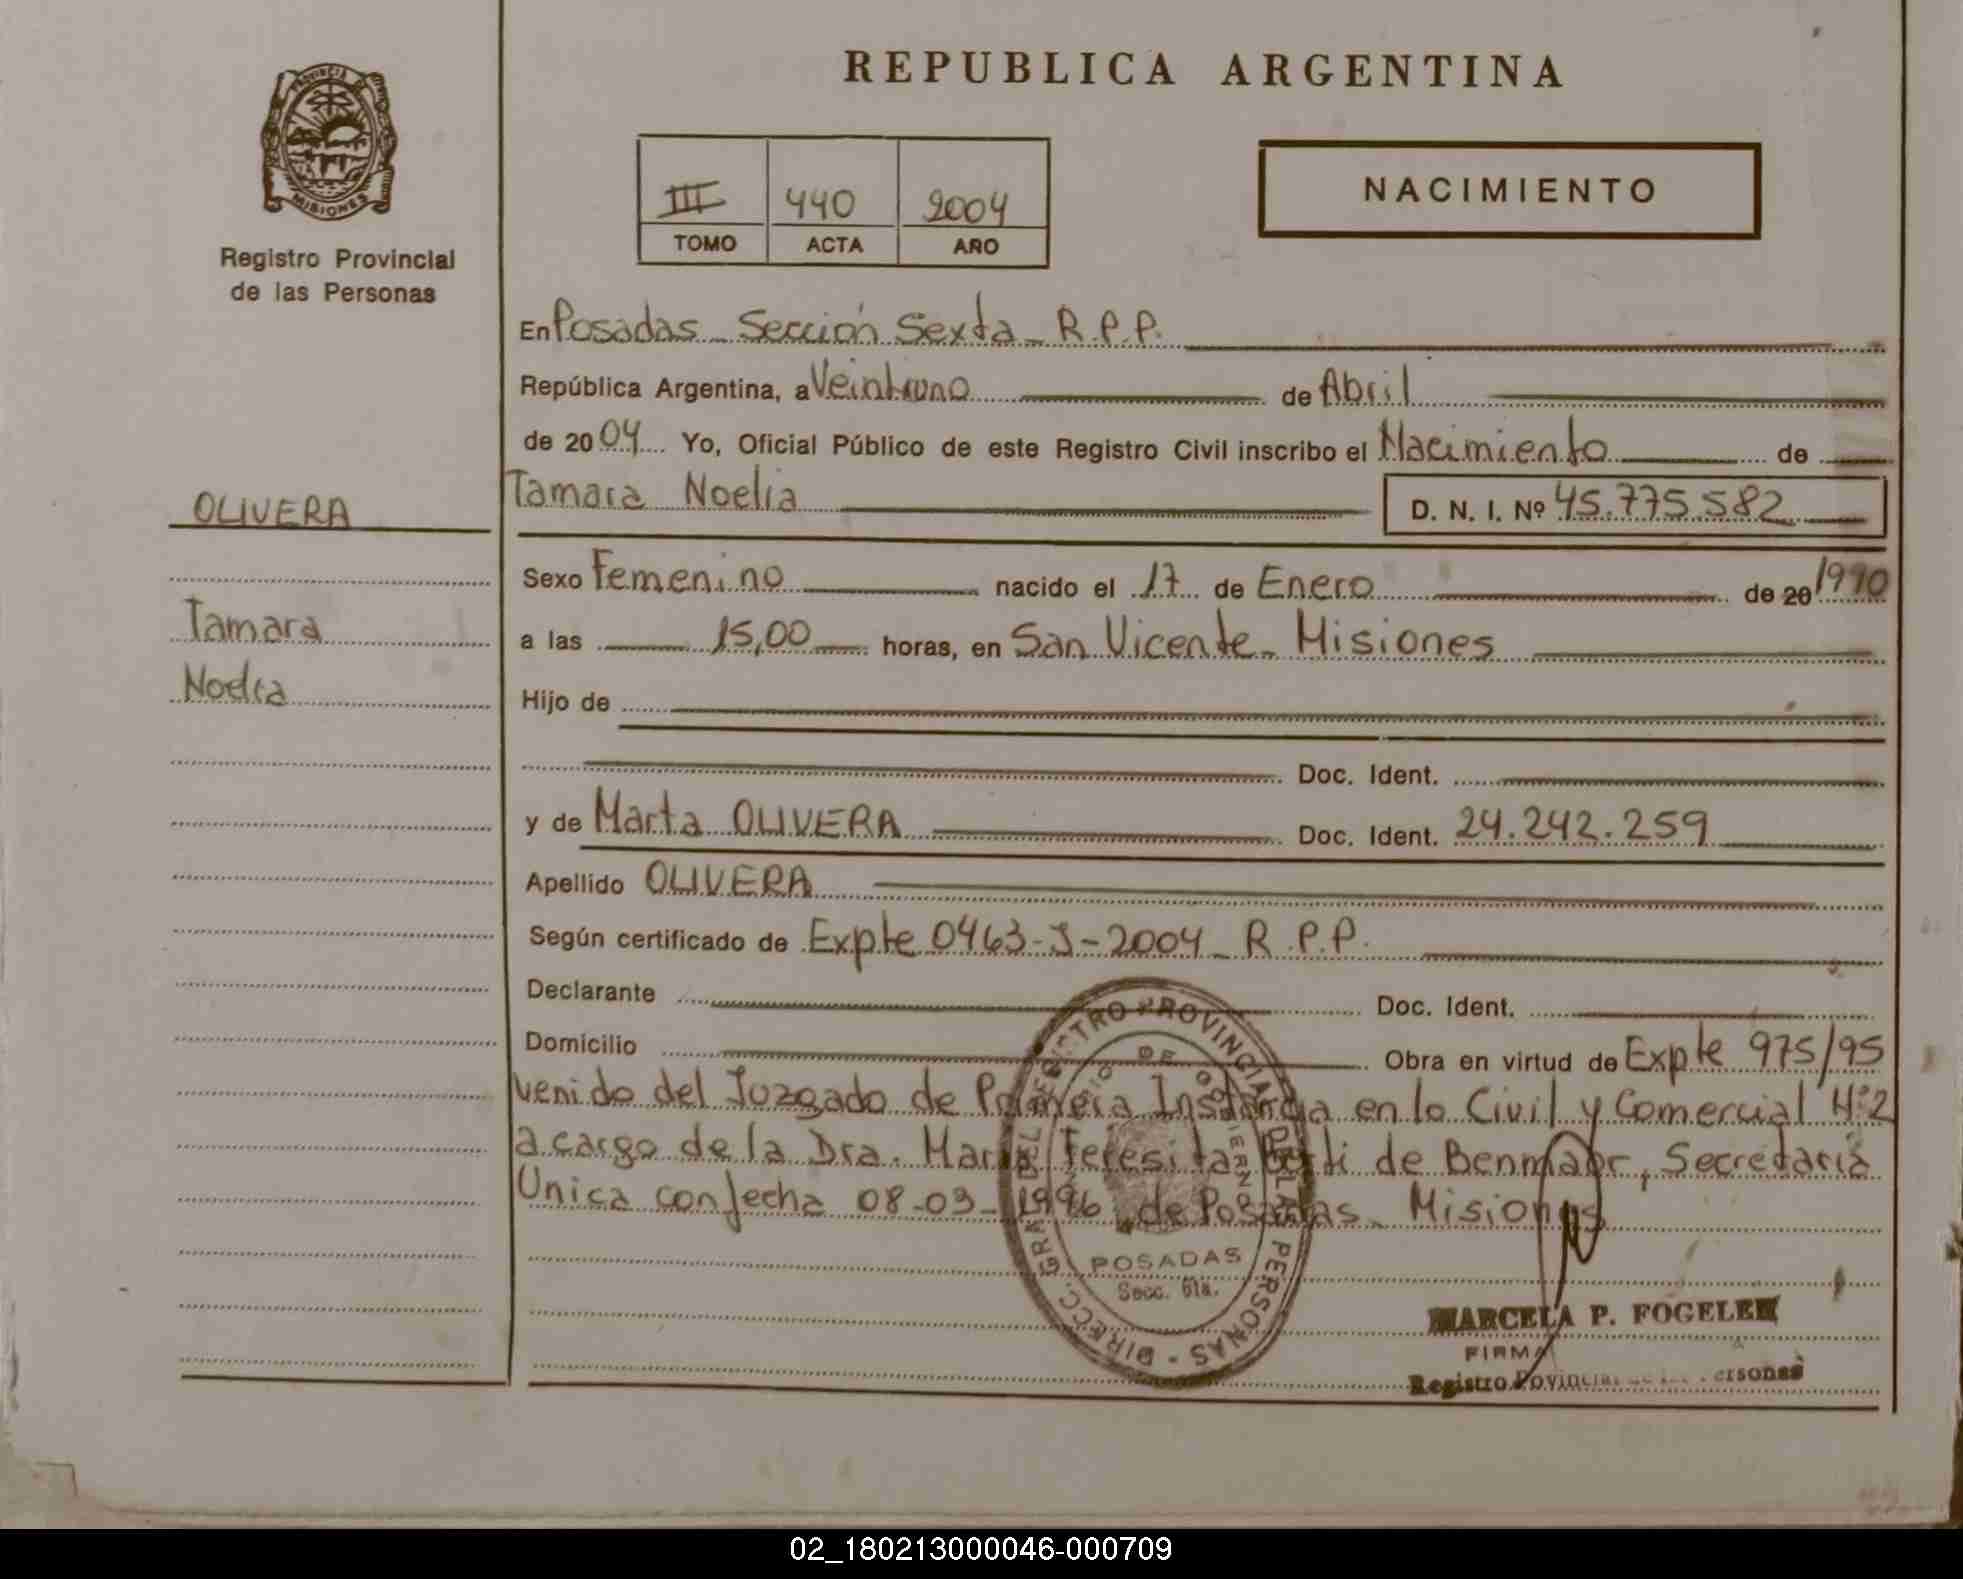 REPUBLICA ARGENTINA
PROVINCIA DE
MISIONES
Registro Provincial
de las Personas
III 440 2004
TOMO ACTA AÑO
NACIMIENTO
En Posadas - Sección Sexta - R.P.P.
República Argentina, a Veintiuno de Abril
de 2004 Yo, Oficial Público de este Registro Civil inscribo el Nacimiento de
OLIVERA
Tamara Noelia D. N. I. Nº 45.775.582
Sexo Femenino nacido el 17 de Enero de 20 1990
Tamara
a las 15,00 horas, en San Vicente - Misiones
Noelia
Hijo de
Doc. Ident.
y de Marta OLIVERA Doc. Ident. 24.242.259
Apellido OLIVERA
Según certificado de Expte 0463-J-2004 - R.P.P.
Declarante Doc. Ident.
Domicilio Obra en virtud de Expte 975/95
venido del Juzgado de Primera Instancia en lo Civil y Comercial Nº 2
a cargo de la Dra. María Teresita de Benmaor, Secretaría
Unica con fecha 08-03-1996 de Posadas - Misiones
DIRECC. GRAL. DEL REGISTRO PROVINCIAL DE LAS PERSONAS
POSADAS
Secc. 6ta.
MARCELA P. FOGELER
FIRMA
Registro Provincial de las Personas
02_180213000046-000709